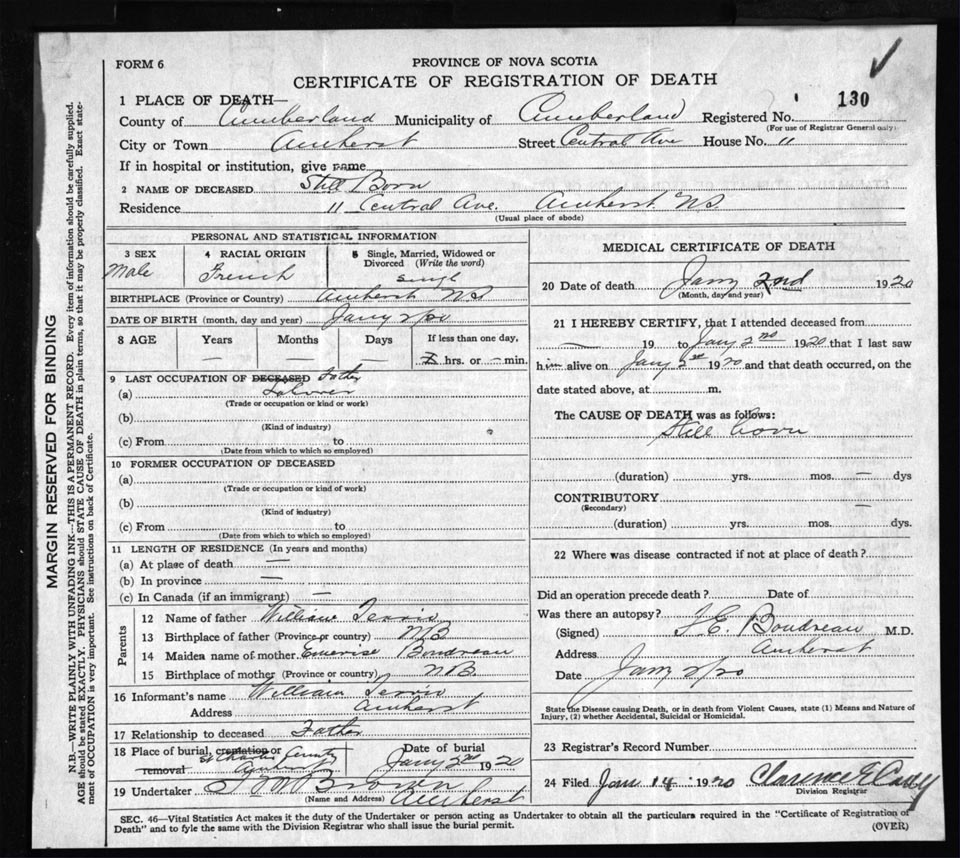 FORM 6
PROVINCE OF NOVA SCOTIA
CERTIFICATE OF REGISTRATION OF DEATH
130
1 PLACE OF DEATH—
County of Cumberland Municipality of Cumberland Registered No.
(For use of Registrar General only)
City or Town Amherst Street Central Ave House No. 11
If in hospital or institution, give name
2 NAME OF DECEASED Still Born
Residence 11 Central Ave. Amherst NS.
(Usual place of abode)
PERSONAL AND STATISTICAL INFORMATION
3 SEX Male
4 RACIAL ORIGIN French
5 Single, Married, Widowed or Divorced (Write the word) Singl
BIRTHPLACE (Province or Country) Amherst NS
DATE OF BIRTH (month, day and year) Jany 2/20
8 AGE Years — Months — Days — If less than one day, hrs. or — min.
9 LAST OCCUPATION OF DECEASED Father
(a) Laborer
(Trade or occupation or kind or work)
(b)
(Kind of industry)
(c) From to
(Date from which to which so employed)
10 FORMER OCCUPATION OF DECEASED
(a)
(Trade or occupation or kind of work)
(b)
(Kind of industry)
(c) From to
(Date from which to which so employed)
11 LENGTH OF RESIDENCE (In years and months)
(a) At place of death —
(b) In province —
(c) In Canada (if an immigrant) —
Parents
12 Name of father William
13 Birthplace of father (Province or country) NB
14 Maiden name of mother Emerise Boudreau
15 Birthplace of mother (Province or country) N.B.
16 Informant's name William
Address Amherst
17 Relationship to deceased Father
18 Place of burial, cremation or removal St Charles Cemetery Amherst
Date of burial Jany 2nd 1920
19 Undertaker Brown Amherst
(Name and Address)
MEDICAL CERTIFICATE OF DEATH
20 Date of death Jany 2nd 1920
(Month, day and year)
21 I HEREBY CERTIFY, that I attended deceased from
— 19 to Jany 2nd 1920 that I last saw
him alive on Jany 2nd 1920 and that death occurred, on the
date stated above, at m.
The CAUSE OF DEATH was as follows:
Still born
(duration) yrs. mos. — dys
CONTRIBUTORY —
(Secondary)
(duration) yrs. mos. dys.
22 Where was disease contracted if not at place of death?
Did an operation precede death? Date of
Was there an autopsy?
(Signed) Boudreau M.D.
Address Amherst
Date Jany 2/20
State the Disease causing Death, or in death from Violent Causes, state (1) Means and Nature of
Injury, (2) whether Accidental, Suicidal or Homicidal.
23 Registrar's Record Number
24 Filed Jan 14 1920 Clarence E Casey
Division Registrar
SEC. 46—Vital Statistics Act makes it the duty of the Undertaker or person acting as Undertaker to obtain all the particulars required in the "Certificate of Registration of
Death" and to fyle the same with the Division Registrar who shall issue the burial permit.
(OVER)
MARGIN RESERVED FOR BINDING
N.B.—WRITE PLAINLY WITH UNFADING INK—THIS IS A PERMANENT RECORD. Every item of information should be carefully supplied.
AGE should be stated EXACTLY. PHYSICIANS should STATE CAUSE OF DEATH in plain terms, so that it may be properly classified. Exact state-
ment of OCCUPATION is very important. See instructions on back of Certificate.